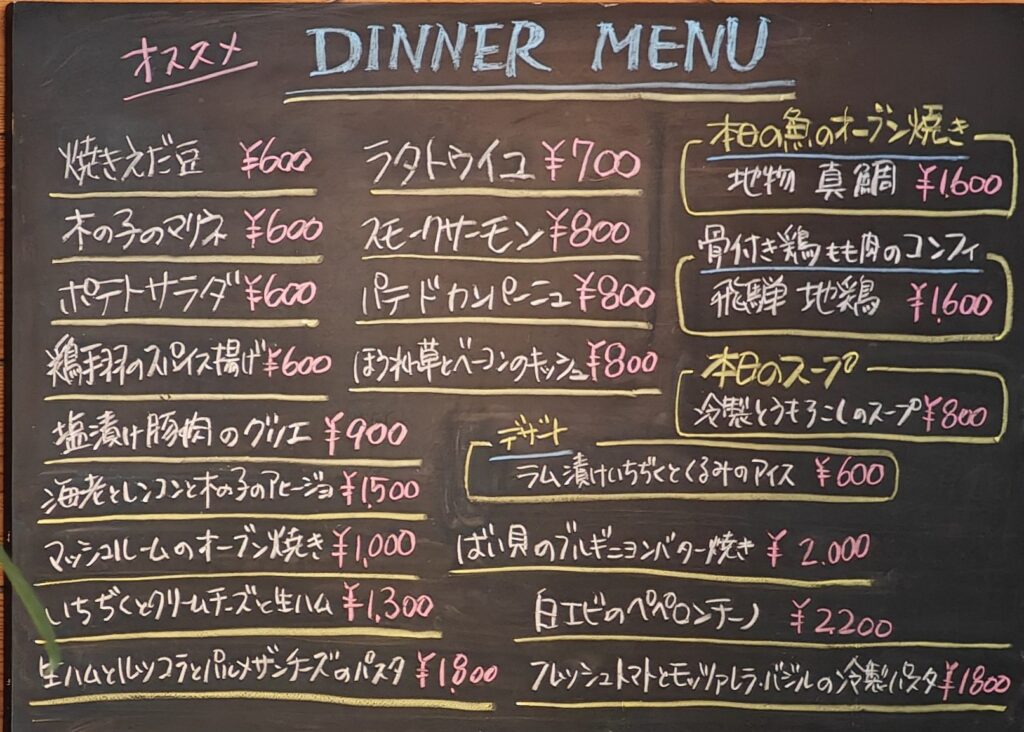 オススメ DINNER MENU
焼きえだ豆 ¥600
木の子のマリネ ¥600
ポテトサラダ ¥600
鶏手羽のスパイス揚げ ¥600
塩漬け豚肉のグリエ ¥900
海老とレンコンと木の子のアヒージョ ¥1,500
マッシュルームのオーブン焼き ¥1,000
いちぢくとクリームチーズと生ハム ¥1,300
生ハムとルッコラとパルメザンチーズのパスタ ¥1,800
ラタトゥイユ ¥700
スモークサーモン ¥800
パテドカンパーニュ ¥800
ほうれん草とベーコンのキッシュ ¥800
本日の魚のオーブン焼き
地物 真鯛 ¥1,600
骨付き鶏もも肉のコンフィ
飛騨 地鶏 ¥1,600
本日のスープ
冷製とうもろこしのスープ ¥800
デザート
ラム漬けいちぢくとくるみのアイス ¥600
ばい貝のブルギニヨンバター焼き ¥2,000
白エビのペペロンチーノ ¥2,200
フレッシュトマトとモッツァレラ・バジルの冷製パスタ ¥1800